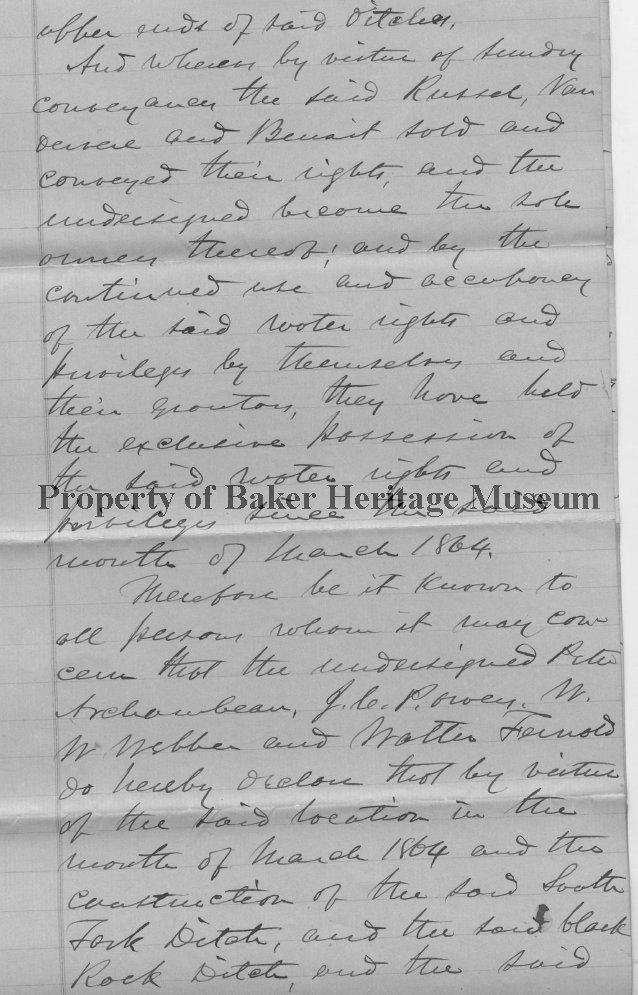 upper ends of said Ditches,
And whereas by virtue of sundry
conveyances the said Russel, Van
devere and Benoit sold and
conveyed their rights, and the
undersigned become the sole
owners thereof; and by the
continued use and occupancy
of the said water rights and
privileges by themselves and
their grantors, they have held
the exclusive possession of
the said water rights and
Property of Baker Heritage Museum
privileges since the said
month of March 1864.
Therefore be it known to
all persons whom it may con
cern that the undersigned Peter
Archambeau, J. C. P. W.
W Webber and Walter Fernald
do hereby declare that by virtue
of the said location in the
month of March 1864 and the
construction of the said South
Fork Ditch, and the said black
Rock Ditch, and the said